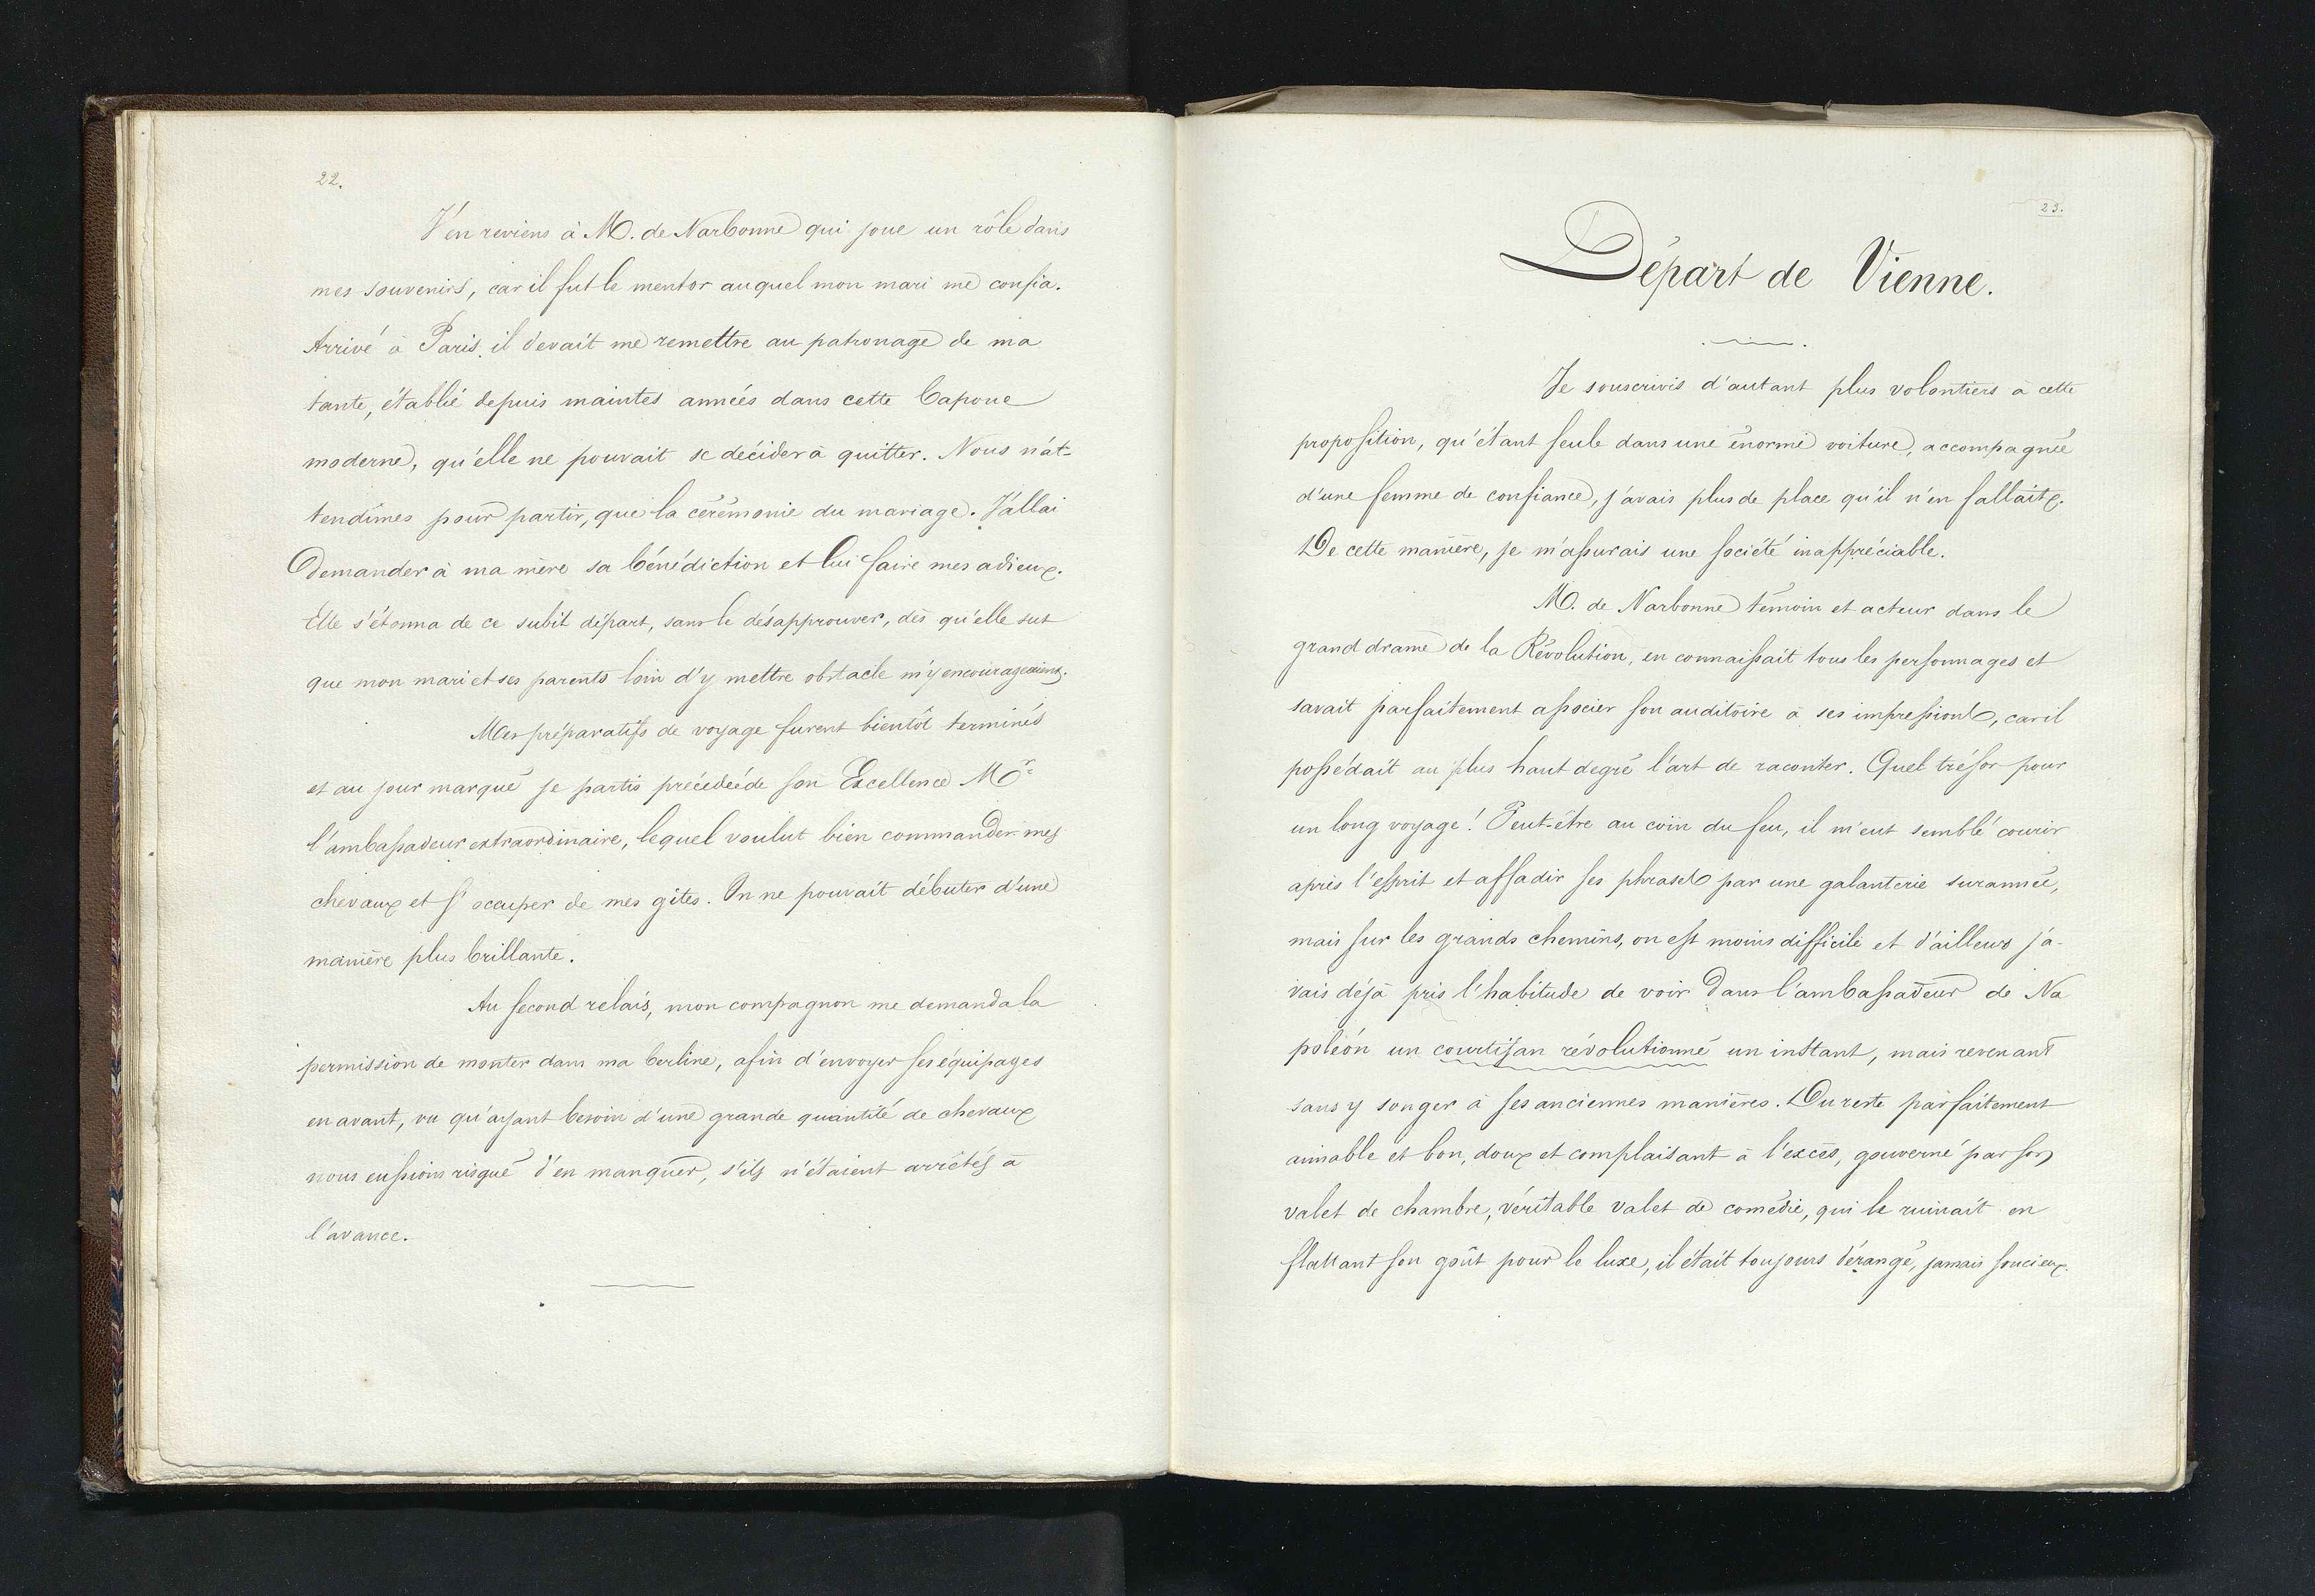 22.
J'en reviens à M. de Narbonne qui joue un rôle dans
mes souvenirs, car il fut le mentor auquel mon mari me confia.
Arrivé à Paris, il devait me remettre au patronage de ma
tante, établie depuis maintes années dans cette Capoue
moderne, qu'elle ne pouvait se décider à quitter. Nous n'at-
tendîmes pour partir, que la cérémonie du mariage. J'allai
Demander à ma mère sa bénédiction et lui faire mes adieux.
Elle s'étonna de ce subit départ, sans le désapprouver, dès qu'elle sut
que mon mari et ses parents loin d'y mettre obstacle m'y encourageaient.
Mes préparatifs de voyage furent bientôt terminés
et au jour marqué je partis précédée de son Excellence Mr
l'ambassadeur extraordinaire, lequel voulut bien commander mes
chevaux et s'occuper de mes gites. On ne pouvait débuter d'une
manière plus brillante.
Au second relais, mon compagnon me demanda la
permission de monter dans ma berline, afin d'envoyer ses équipages
en avant, vu qu'ayant besoin d'une grande quantité de chevaux
nous eussions risqué d'en manquer, s'ils n'étaient arrêtés à
l'avance.
23.
Départ de Vienne.
Je souscrivis d'autant plus volontiers à cette
proposition, qu'étant seule dans une énorme voiture, accompagnée
d'une femme de confiance, j'avais plus de place qu'il n'en fallait.
De cette manière, je m'assurais une société inappréciable.
M. de Narbonne témoin et acteur dans le
grand drame de la Révolution, en connaissait tous les personnages et
savait parfaitement associer son auditoire à ses impressions, car il
possédait au plus haut degré l'art de raconter. Quel trésor pour
un long voyage! Peut-être au coin du feu, il m'eut semblé courir
après l'esprit et affadir ses phrases par une galanterie surannée,
mais sur les grands chemins, on est moins difficile et d'ailleurs j'a-
vais déjà pris l'habitude de voir dans l'ambassadeur de Na
poléon un courtisan révolutionné un instant, mais revenant
sans y songer à ses anciennes manières. Du reste parfaitement
aimable et bon, doux et complaisant à l'excès, gouverné par son
valet de chambre, véritable valet de comédie, qui le ruinait en
flattant son goût pour le luxe, il était toujours dérangé, jamais soucieux.